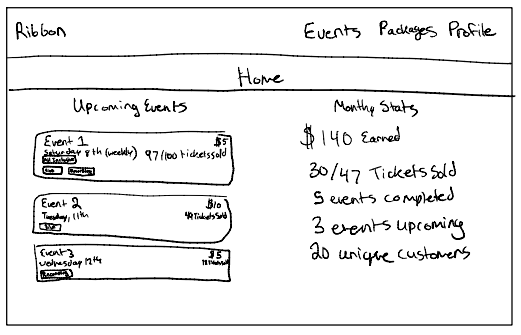 Ribbon
Events Packages Profile
Home
Upcoming Events
Event 1 $5
Saturday 8th (weekly) 97/100 tickets sold
Event 2 $10
Tuesday, 11th 49 Tickets Sold
Event 3 $5
Wednesday 12th
Monthly Stats
$140 Earned
30/47 Tickets Sold
5 events completed
3 events upcoming
20 unique customers